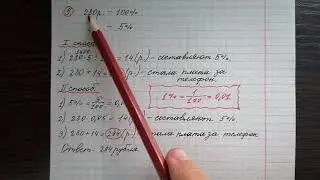 ③ 280р. – 100%
– 5%
I способ
1) 280·5 = 14(р.) – составляют 5%.
2) 280+14 = (р.) – стала плата за
телефон.
II способ
1) 5% = /100 = 0,0
1% = 1/100 = 0,01
2) 280·0,05 = 14(р.) – составляют 5%
3) 280+14 = 294(р.) – стала плата за телефон
Ответ: 294 рубля.